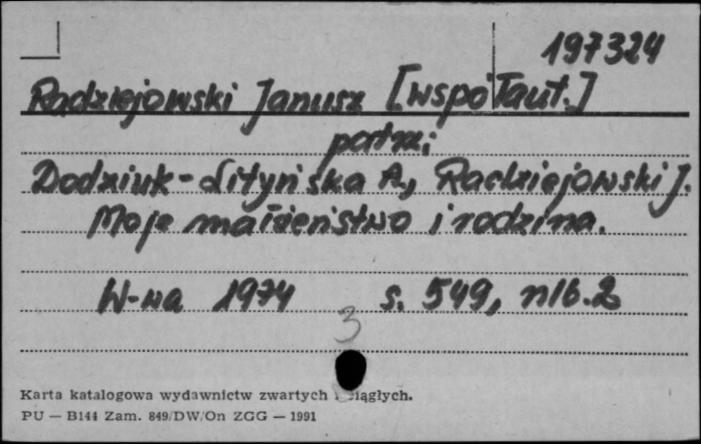 197324
Radziejowski Janusz [współaut.]
patrz:
Dodziuk-Lityńska A., Radziejowski J.
Moje małżeństwo i rodzina.
W-wa 1974 s. 549, nlb. 2
3
Karta katalogowa wydawnictw zwartych i ciągłych.
PU — B144 Zam. 849/DW/On ZGG — 1991